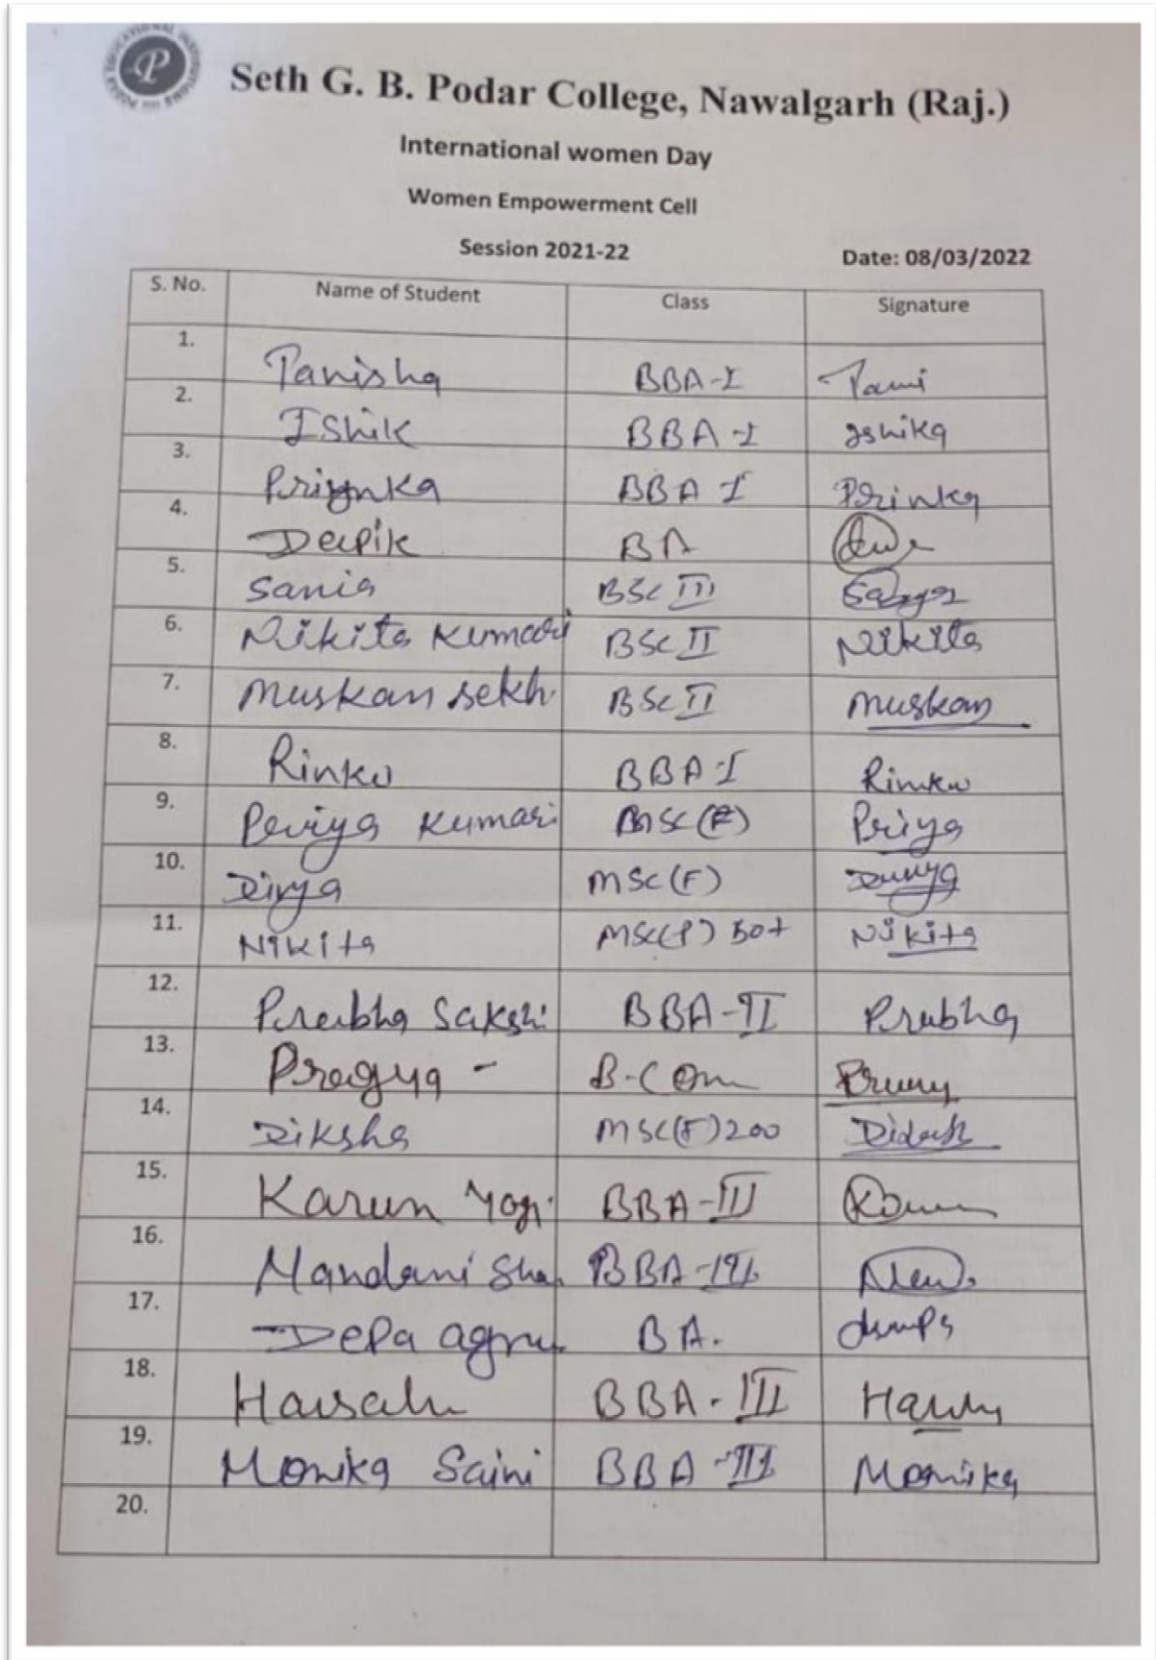 P
Seth G. B. Podar College, Nawalgarh (Raj.)
International women Day
Women Empowerment Cell
Session 2021-22 Date: 08/03/2022
S. No. Name of Student Class Signature
1. Tanisha BBA-I Tami
2. Ishik BBA-I Ishika
3. Priynka BBA I Prinka
4. Deepik BA
5. Sania BSc III
6. Nikita Kumari BSc II Nikita
7. Muskan sekh. BSc II Muskan
8. Rinku BBA-I Rinku
9. Peviya Kumari MSc(F) Priya
10. Divya MSc(F) Divya
11. Nikita MSc(P) Bot Nikita
12. Prabha Sakshi BBA-II Prabha
13. Pragya - B-Com
14. Diksha MSc(F)Zoo
15. Karun Yogi BBA-III
16. Mandani Sha BBA-III
17. Depa agru BA.
18. BBA-III
19. Monika Saini BBA-III Monika
20.